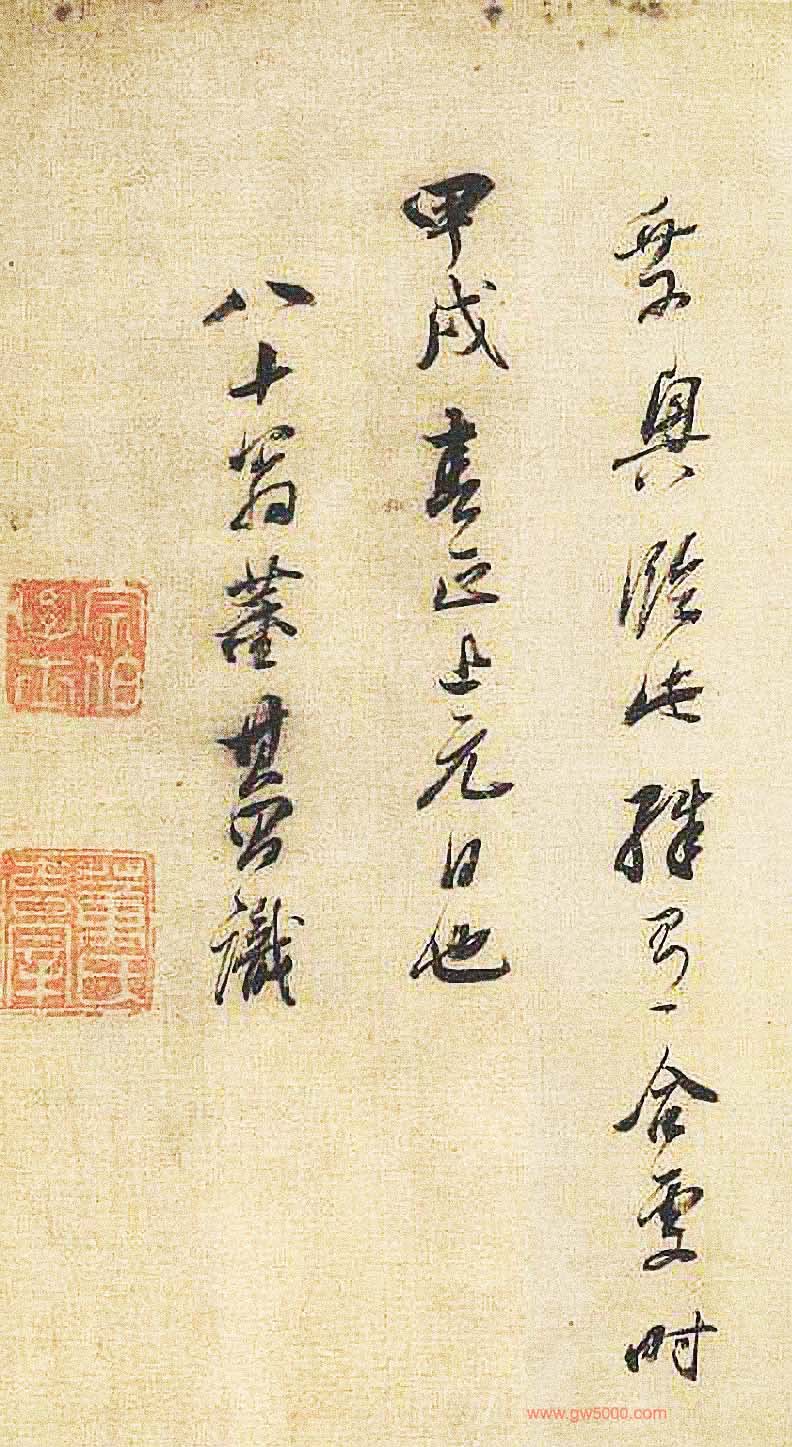 乘興臨此殊有一合處時
甲戌春正上元日也
八十翁董其昌識
宗伯學士
董氏玄宰
www.gw5000.com